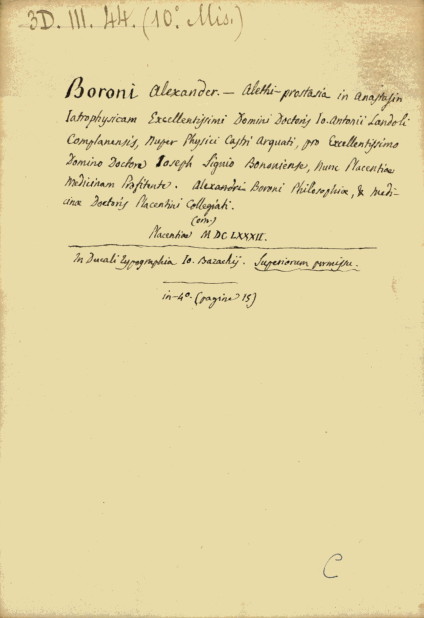 3D. III. 44. (10.° Mis.)
Boroni Alexander. — Alethi-prostasia in Anastasin
Iatrophysicam Excellentissimi Domini Doctoris Io. Antonii Landoli
Complanensis, nuper Physici Castri Arquati, pro Excellentissimo
Domino Doctore Ioseph Siguio Bononiense, nunc Placentiae
Medicinam Profitente. Alexandri Boroni Philosophiae, & medi-
cinae Doctoris Placentini Collegiati.
Placentiae M DC LXXXII.
In Ducali Typographia Io. Bazachij. Superiorum permissu.
in-4°. (pagine 15)
C